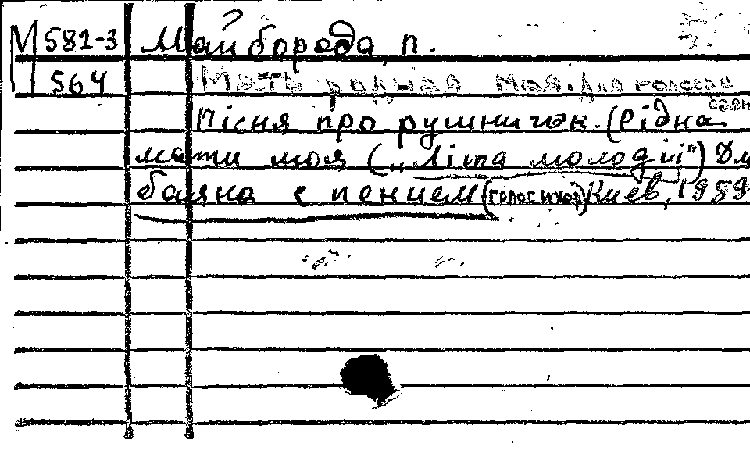 М 581-3 Майборода, П.
564 Мать родная моя. Для голоса
баян
Пісня про рушничок. (Рідна
мати моя („Літа молодії") Для
баяна с пением (голос и хор) Киев, 1959